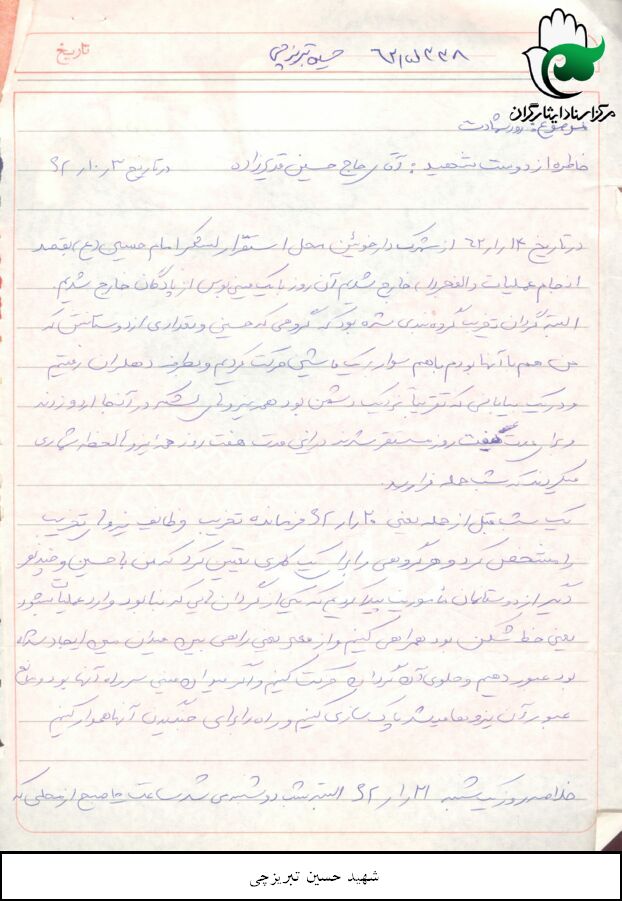 تاریخ
حسین تبریزچی
مرکز اسناد ایثارگران
موضوع: روز شهادت
خاطره از دوست شهید: آقای حاج حسین قدیرزاده در تاریخ
در تاریخ از شهرک دارخوئین محل استقرار لشکر امام حسین (ع) بقصد
انجام عملیات والفجر خارج شدیم آن روز با یک مینی بوس از پادگان خارج شدیم.
البته گردان تقریباً گروه بندی شده بود که گروهی که حسین و تعدادی از دوستانش که
من هم با آنها بودم با هم سوار بر یک ماشین حرکت کردیم و بطرف دهلران رفتیم
و در یک بیابانی که تقریباً نزدیک دشمن بود همه نیروهای لشکر در آنجا اردو زدند
و برای مدت هفت روز مستقر شدند در این مدت هفت روز همه نیروها لحظه شماری
میکردند که شب حمله فرا رسد.
یک شب قبل از حمله یعنی فرمانده تخریب وظایف نیروهای تخریب
را مشخص کرد و هر گروهی را برای یک کاری تعیین کرد که من با حسین و چند نفر
دیگر از دوستانمان مأموریت پیدا کردیم که یکی از گردان هایی که بنا بود وارد عملیات بشود
یعنی خط شکن بود همراهی کنیم و از معبر یعنی راهی بین میدان مین ایجاد شده
بود عبور دهیم و جلوی آن گردان حرکت کنیم و اگر میدان مینی سر راه آنها بود و مانع
عبور آن نیروها میشد پاک سازی کنیم و راه را برای جنگیدن آنها هموار کنیم
خلاصه روز یکشنبه البته شب دوشنبه می شد ساعت صبح از محلی که
شهید حسین تبریزچی